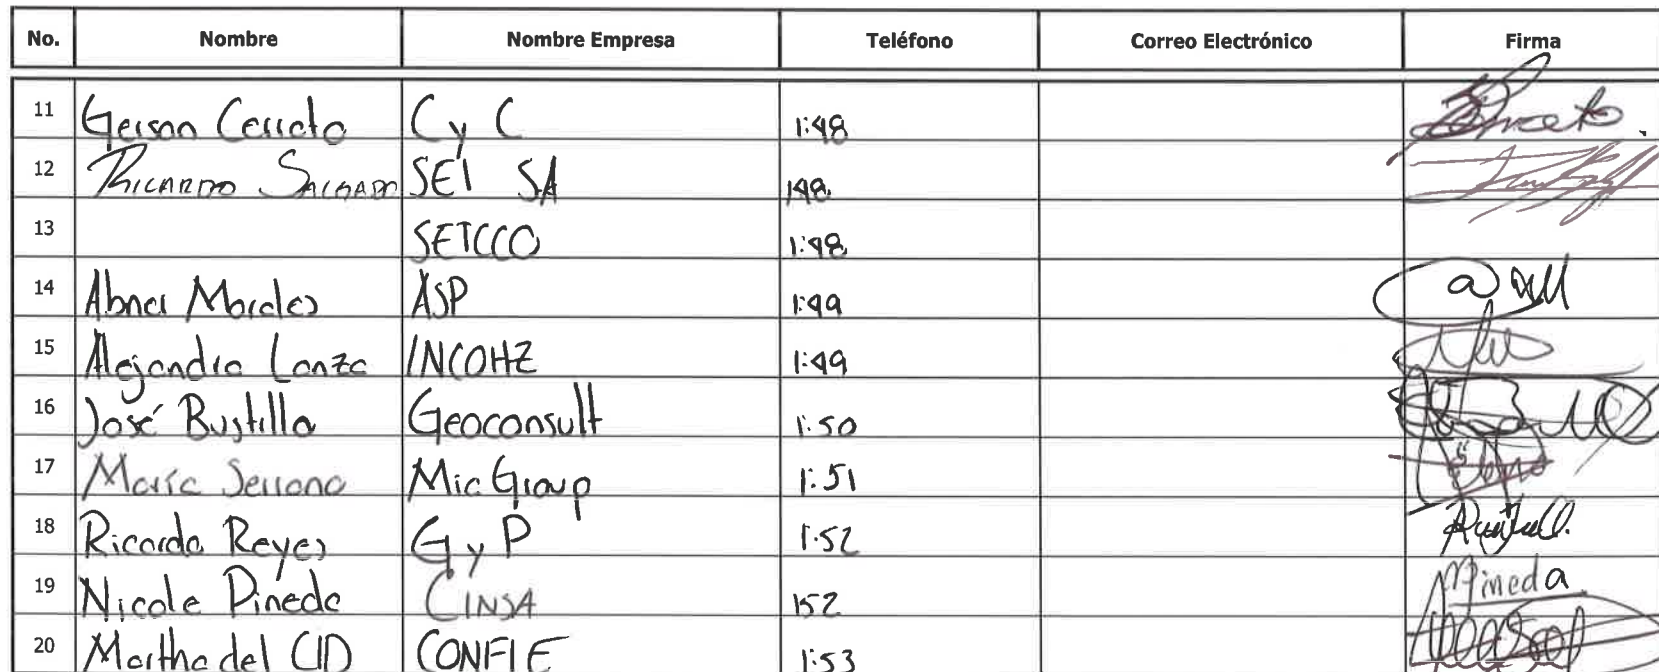 No. Nombre Nombre Empresa Teléfono Correo Electrónico Firma
11 Gerson Cerrato C y C 1:48
12 Ricardo Salgado SEI SA 148
13 SETCCO 1:48
14 Abner Morales ASP 1:49
15 Alejandra Lanza INCOHZ 1:49
16 José Bustillo Geoconsult 1:50
17 María Serrano Mic Group 1:51
18 Ricardo Reyes G y P 1:52
19 Nicole Pineda CINSA 152 Pineda
20 Martha del CID CONFIE 1:53